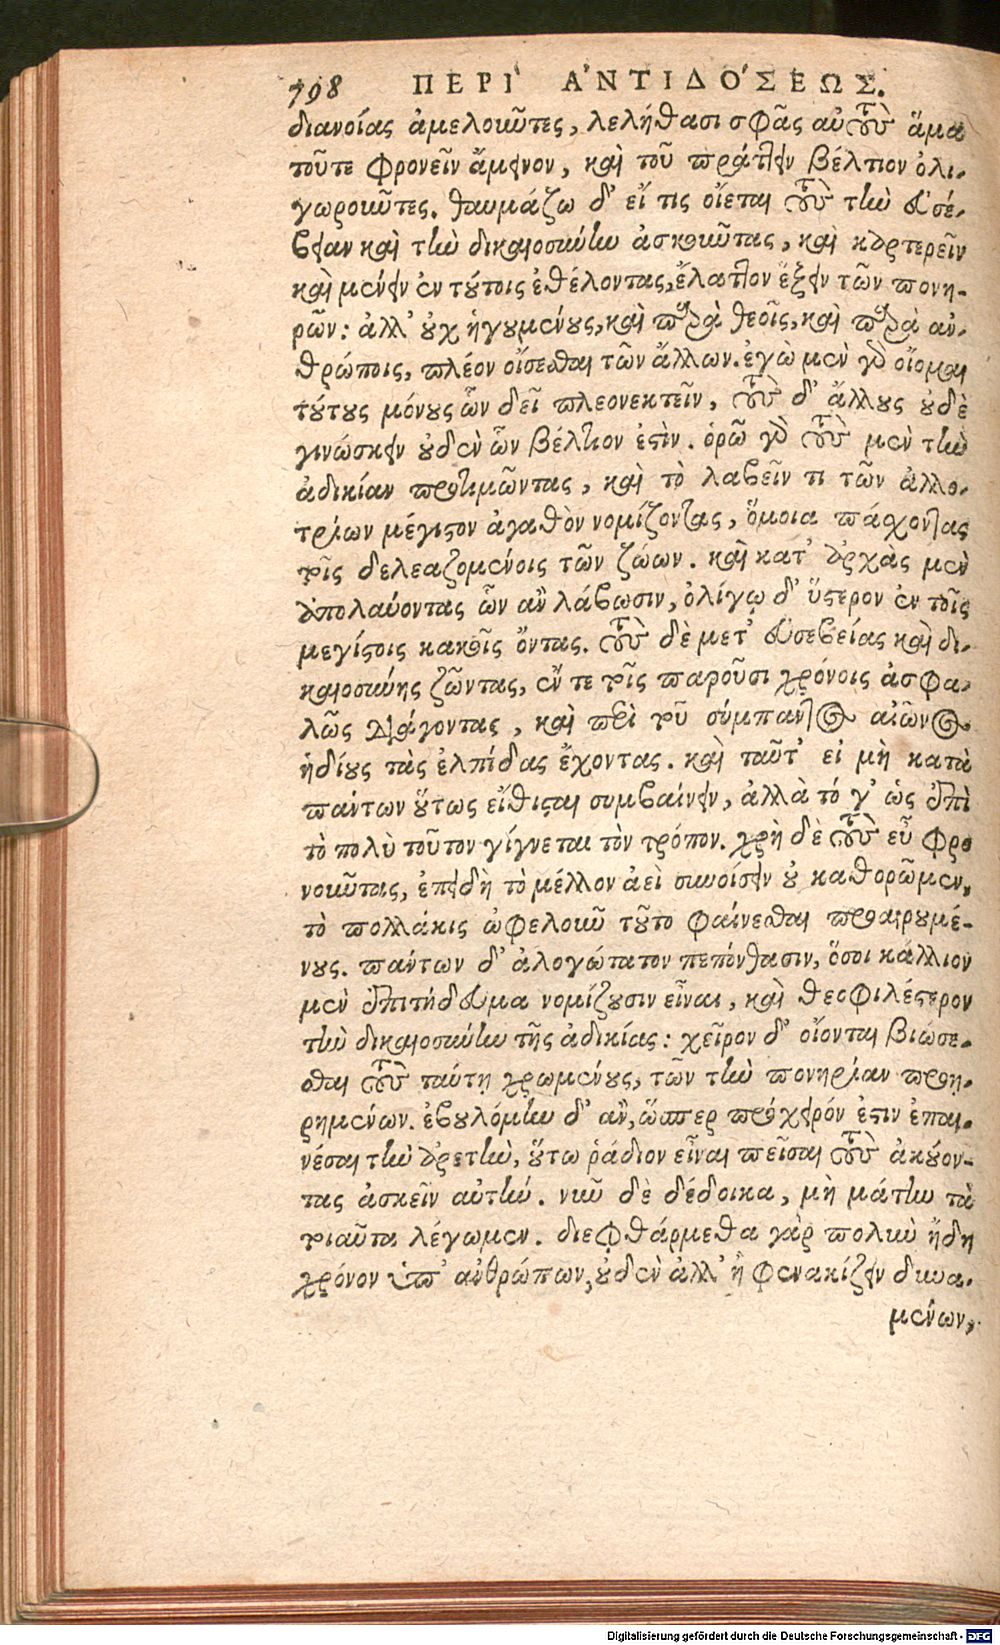 798 ΠΕΡΙ' Α'ΝΤΙΔΟ'ΣΕΩΣ.
διανοίας ἀμελοῦντες, λελήθασι σφᾶς αὐτοὺς ἅμα
τοῦτε φρονεῖν ἄμεινον, καὶ τοῦ πράττειν βέλτιον ὀλι-
γωροῦντες. θαυμάζω δ' εἴ τις οἴεται τοὺς τὴν εὐσέ-
βειαν καὶ τὴν δικαιοσύνην ἀσκοῦντας, καὶ καρτερεῖν
καὶ μένειν ἐν τούτοις ἐθέλοντας, ἔλαττον ἕξειν τῶν πονη-
ρῶν: ἀλλ' οὐχ ἡγουμένους, καὶ παρὰ θεοῖς, καὶ παρὰ ἀν-
θρώποις, πλέον οἴσεσθαι τῶν ἄλλων. ἐγὼ μὲν γὰρ οἴομαι
τούτους μόνους ὧν δεῖ πλεονεκτεῖν, τοὺς δ' ἄλλους οὐδὲ
γινώσκειν οὐδὲν ὧν βέλτιον ἐστίν. ὁρῶ γὰρ τοὺς μὲν τὴν
ἀδικίαν προτιμῶντας, καὶ τὸ λαβεῖν τι τῶν ἀλλο-
τρίων μέγιστον ἀγαθὸν νομίζοντας, ὅμοια πάσχοντας
τοῖς δελεαζομένοις τῶν ζώων. καὶ κατ' ἀρχὰς μὲν
ἀπολαύοντας ὧν ἂν λάβωσιν, ὀλίγῳ δ' ὕστερον ἐν τοῖς
μεγίστοις κακοῖς ὄντας. τοὺς δὲ μετ' εὐσεβείας καὶ δι-
καιοσύνης ζῶντας, ἔν τε τοῖς παροῦσι χρόνοις ἀσφα-
λῶς διάγοντας, καὶ περὶ τοῦ σύμπαντος αἰῶνος
ἡδίους τὰς ἐλπίδας ἔχοντας. καὶ ταῦτ' εἰ μὴ κατὰ
πάντων οὕτως εἴθισται συμβαίνειν, ἀλλὰ τό γ' ὡς ἐπὶ
τὸ πολὺ τοῦτον γίγνεται τὸν τρόπον. χρὴ δὲ τοὺς εὖ φρο
νοῦντας, ἐπειδὴ τὸ μέλλον ἀεὶ συνοίσειν οὐ καθορῶμεν,
τὸ πολλάκις ὠφελοῦν τοῦτο φαίνεσθαι προαιρουμέ-
νους. πάντων δ' ἀλογώτατον πεπόνθασιν, ὅσοι κάλλιον
μὲν ἐπιτήδευμα νομίζουσιν εἶναι, καὶ θεοφιλέστερον
τὴν δικαιοσύνην τῆς ἀδικίας: χεῖρον δ' οἴονται βιώσε-
σθαι τοὺς ταύτῃ χρωμένους, τῶν τὴν πονηρίαν προῃ-
ρημένων. ἐβουλόμην δ' ἂν, ὥσπερ πρόχειρόν ἐστιν ἐπαι-
νέσαι τὴν ἀρετὴν, οὕτω ῥάδιον εἶναι πεῖσαι τοὺς ἀκούον-
τας ἀσκεῖν αὐτήν. νῦν δὲ δέδοικα, μὴ μάτην τὰ
τοιαῦτα λέγωμεν. διεφθάρμεθα γὰρ πολὺν ἤδη
χρόνον ὑπ' ἀνθρώπων, οὐδὲν ἀλλ' ἢ φενακίζειν δυνα-
μένων,
Digitalisierung gefördert durch die Deutsche Forschungsgemeinschaft - DFG